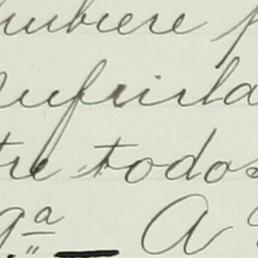 hubiere p
sufrirla
tre todos
9ª A